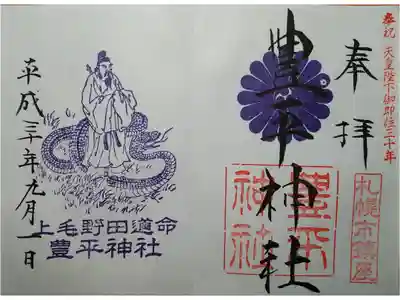 奉祝 天皇陛下御即位三十年
奉拝
豊平神社
札幌市鎮座
豊平
神社
平成三十年九月一日
上毛野田道命
豊平神社